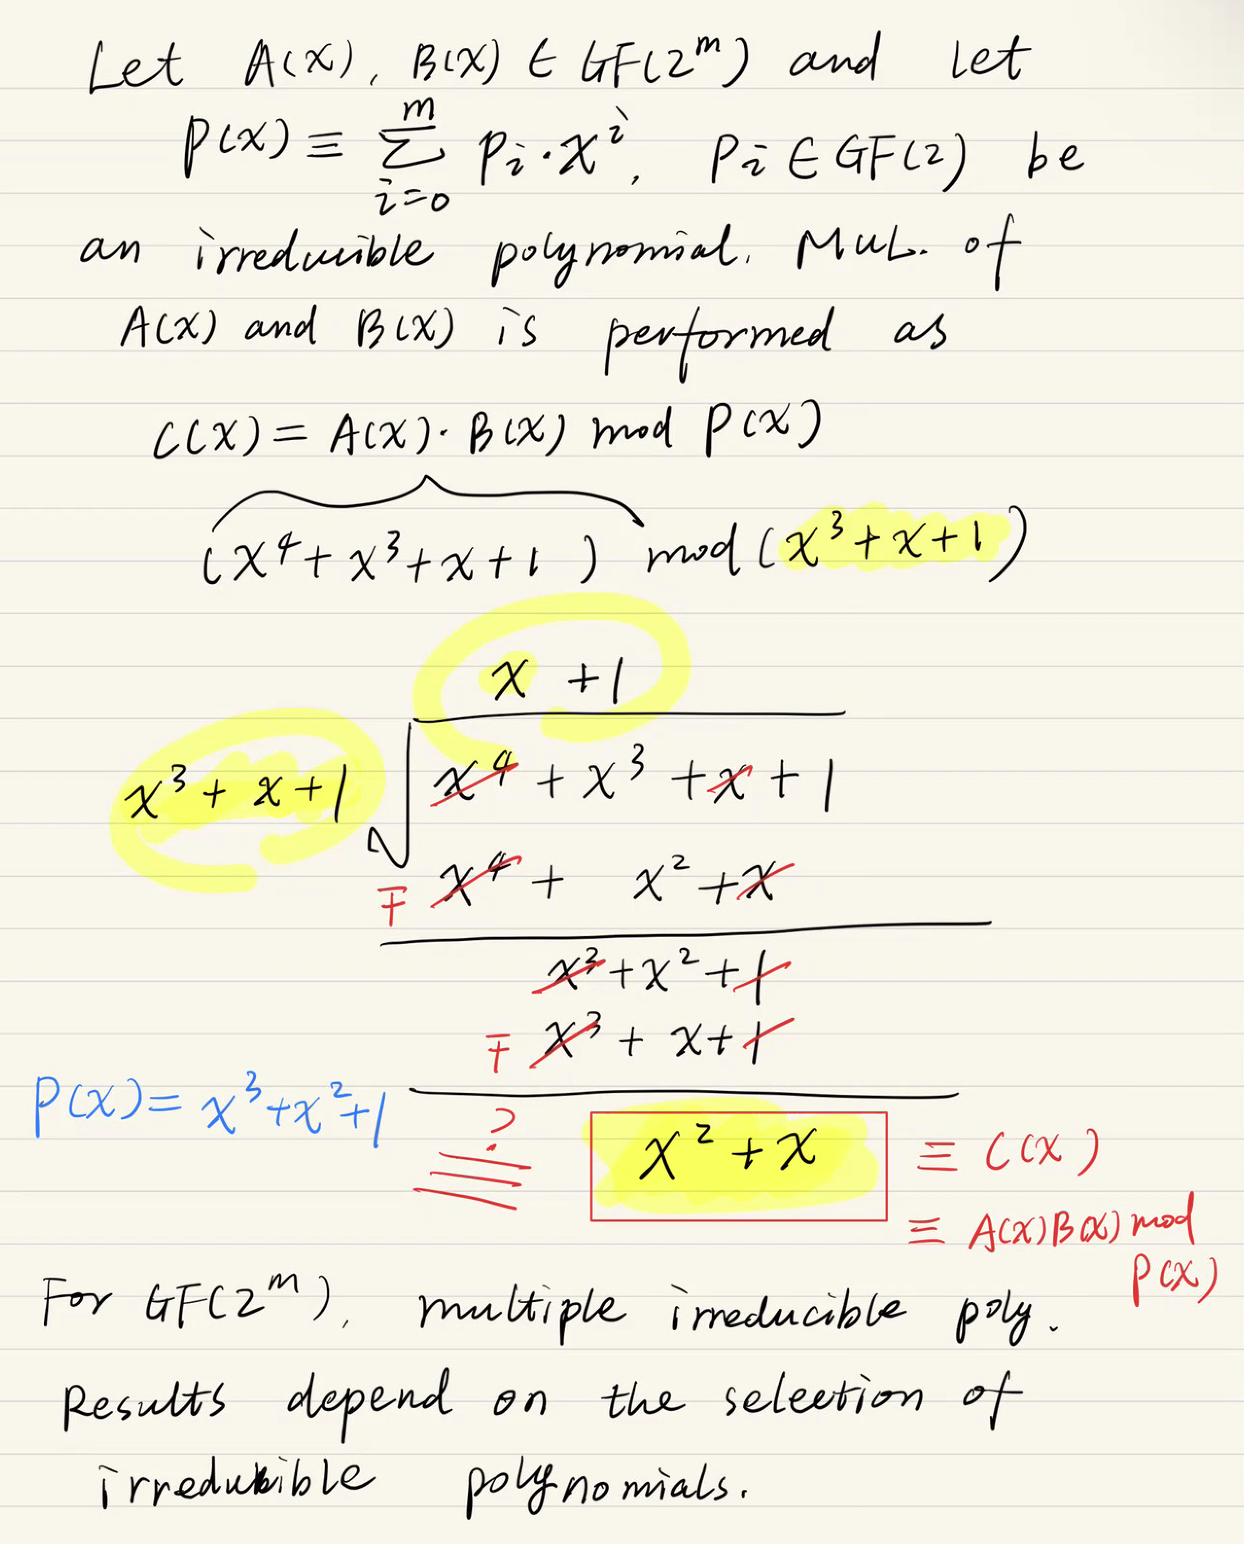 Let A(x), B(x) ∈ GF(2^m) and let
P(x) ≡ ∑_{i=0}^{m} Pi · x^i, Pi ∈ GF(2) be
an irreducible polynomial. MUL. of
A(x) and B(x) is performed as
C(x) = A(x) · B(x) mod P(x)
(x^4 + x^3 + x + 1) mod (x^3 + x + 1)
x + 1
x^3 + x + 1 √ x^4 + x^3 + x + 1
∓ x^4 + x^2 + x
x^3 + x^2 + 1
∓ x^3 + x + 1
P(x) = x^3 + x^2 + 1
? x^2 + x ≡ C(x)
≡ A(x)B(x) mod
P(x)
For GF(2^m), multiple irreducible poly.
Results depend on the selection of
irreducible polynomials.